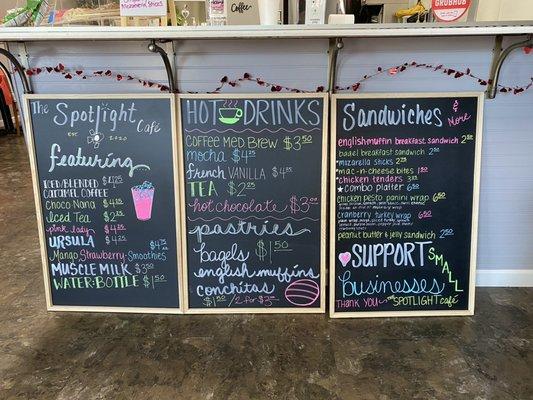 Coffee
GRUBHUB
The Spotlight Café
EST. 2020
featuring
ICED/BLENDED $4.25
CARAMEL COFFEE
CHOCO NANA $4.25
ICED TEA $2
pink lady $4.25
URSULA $4.25
Mango Strawberry Smoothies $4.75
MUSCLE MILK $3.50
WATER BOTTLE $1.50
HOT DRINKS
COFFEE MED BREW $3.50
mocha $4.25
french VANILLA $4.25
TEA $2.25
hot chocolate $3.00
pastries
bagels $1.50
english muffins
conchitas $1.50 2 for $3.00
SANDWICHES & More
english muffin breakfast sandwich 2.50
bagel breakfast sandwich 2.50
mozarella sticks
mac-n-cheese bites
chicken tenders
★ combo platter
chicken pesto panini wrap 6.50
cranberry turkey wrap 6.50
peanut butter & jelly sandwich 2.50
SUPPORT SMALL
Businesses
THANK YOU SPOTLIGHT café